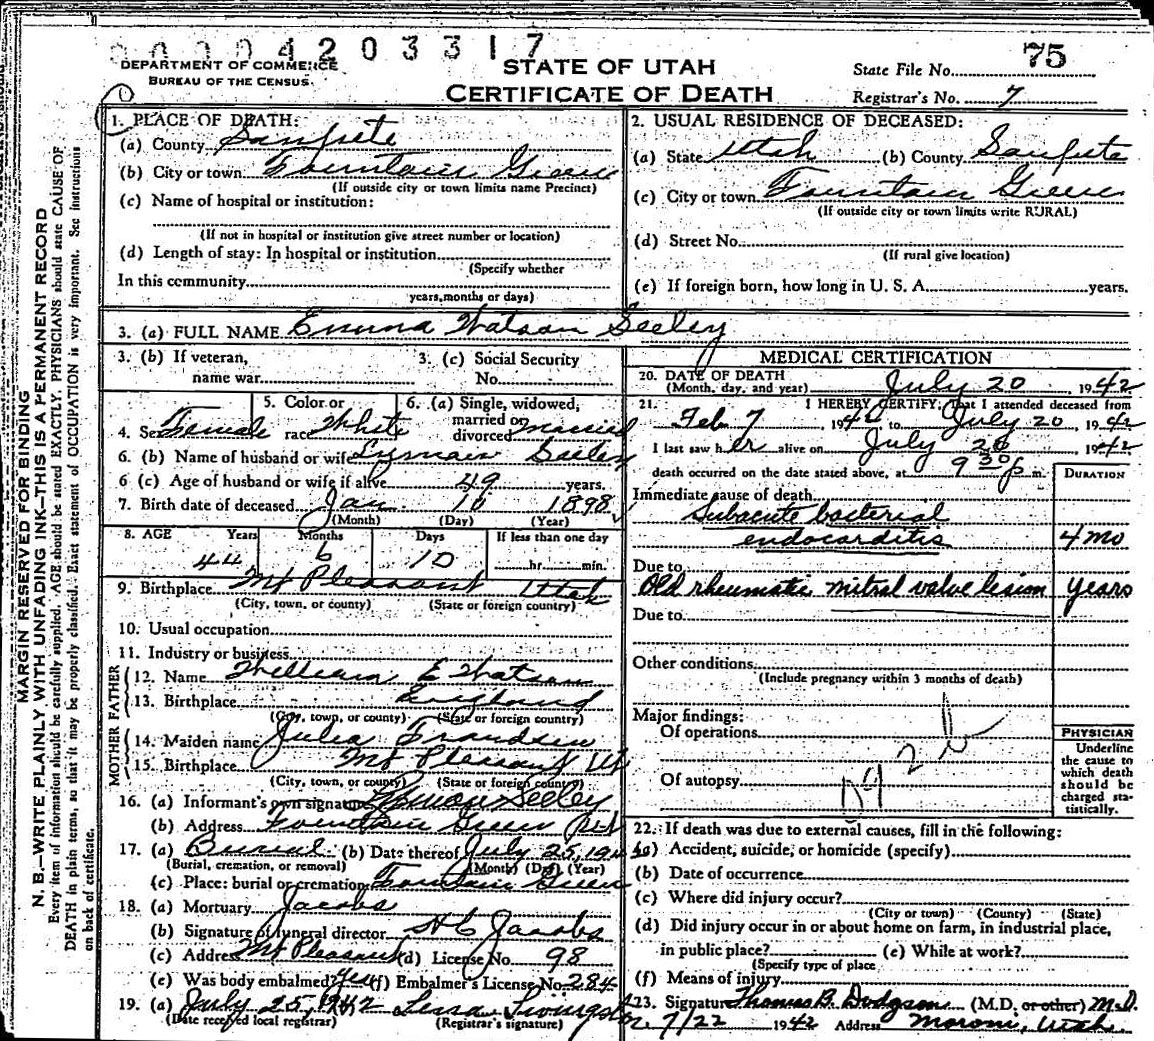 0000420331 7
75
DEPARTMENT OF COMMERCE
BUREAU OF THE CENSUS.
STATE OF UTAH
CERTIFICATE OF DEATH
State File No.
Registrar's No. 7
MARGIN RESERVED FOR BINDING
N. B.—WRITE PLAINLY WITH UNFADING INK—THIS IS A PERMANENT RECORD
Every item of information should be carefully supplied. AGE should be stated EXACTLY. PHYSICIANS should state CAUSE OF
DEATH in plain terms, so that it may be properly classified. Exact statement of OCCUPATION is very important. See instructions
on back of certificate.
1. PLACE OF DEATH:
(a) County Sanpete
(b) City or town Fountain Green
(If outside city or town limits name Precinct)
(c) Name of hospital or institution:
(If not in hospital or institution give street number or location)
(d) Length of stay: In hospital or institution
(Specify whether
In this community
years, months or days)
2. USUAL RESIDENCE OF DECEASED:
(a) State Utah (b) County Sanpete
(c) City or town Fountain Green
(If outside city or town limits write RURAL)
(d) Street No.
(If rural give location)
(e) If foreign born, how long in U. S. A. years.
3. (a) FULL NAME Emma Watson Seeley
3. (b) If veteran,
name war
3. (c) Social Security
No.
4. Sex Female
5. Color or
race White
6. (a) Single, widowed,
married or
divorced married
6. (b) Name of husband or wife Lyman Seeley
6 (c) Age of husband or wife if alive 49 years.
7. Birth date of deceased Jan 10 1898
(Month) (Day) (Year)
8. AGE Years Months Days If less than one day
44 6 10 hr. min.
9. Birthplace Mt Pleasant Utah
(City, town, or county) (State or foreign country)
10. Usual occupation
11. Industry or business
FATHER
12. Name William E Watson
13. Birthplace England
(City, town, or county) (State or foreign country)
MOTHER
14. Maiden name Julia Frandsen
15. Birthplace Mt Pleasant Ut
(City, town, or county) (State or foreign country)
16. (a) Informant's own signature Lyman Seeley
(b) Address Fountain Green
17. (a) Burial (b) Date thereof July 25, 194
(Burial, cremation, or removal) (Month) (Day) (Year)
(c) Place: burial or cremation Fountain Green
18. (a) Mortuary Jacobs
(b) Signature of funeral director H C Jacobs
(c) Address Mt Pleasant (d) License No. 98
(e) Was body embalmed? Yes (f) Embalmer's License No. 284
19. (a) July 25, 1942 Livingston
(Date received local registrar) (Registrar's signature)
MEDICAL CERTIFICATION
20. DATE OF DEATH
(Month, day, and year) July 20 1942
21. I HEREBY CERTIFY, that I attended deceased from
Feb 7 1942 to July 20, 1942
I last saw her alive on July 20 1942
death occurred on the date stated above, at 9 30 p m.
DURATION
Immediate cause of death
Subacute bacterial
endocarditis 4 mo
Due to
Old rheumatic mitral valve lesion years
Due to
Other conditions
(Include pregnancy within 3 months of death)
Major findings:
Of operations
Of autopsy
PHYSICIAN
Underline
the cause to
which death
should be
charged sta-
tistically.
22. If death was due to external causes, fill in the following:
(a) Accident, suicide, or homicide (specify)
(b) Date of occurrence
(c) Where did injury occur?
(City or town) (County) (State)
(d) Did injury occur in or about home on farm, in industrial place,
in public place? (e) While at work?
(Specify type of place
(f) Means of injury
23. Signature Thomas B. Dodgson (M.D. or other) M.D.
7/22 1942 Address Moroni, Utah